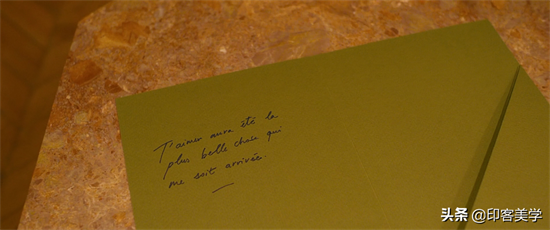 T'aimer aura été la
plus belle chose qui
me soit arrivée.
头条 @印客美学